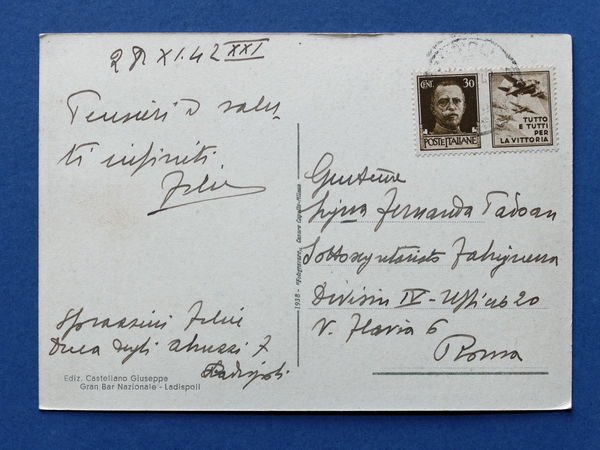 28 XI.42 XXI
Pensieri e salu-
ti infiniti
Felice
CENT. 30
POSTE ITALIANE
TUTTO
E TUTTI
PER
LA VITTORIA
Gentile
Sig.na Fernanda Padoan
Sottosegretariato Fabbriguerra
Divisione IV - Ufficio 20
V. Flavia 6
Roma
Felice
Duca degli Abruzzi 7
Ladispoli
Ediz. Castellano Giuseppe
Gran Bar Nazionale - Ladispoli
1938 - "Fotogravure" Cesare Capello-Milano